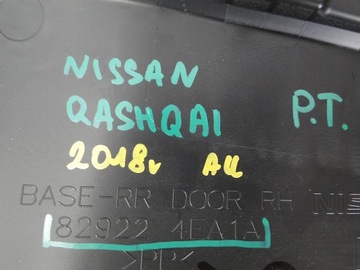 NISSAN
QASHQAI P.T.
2018r AU
BASE-RR DOOR RH NIS
82922 4EA1A
>PP<